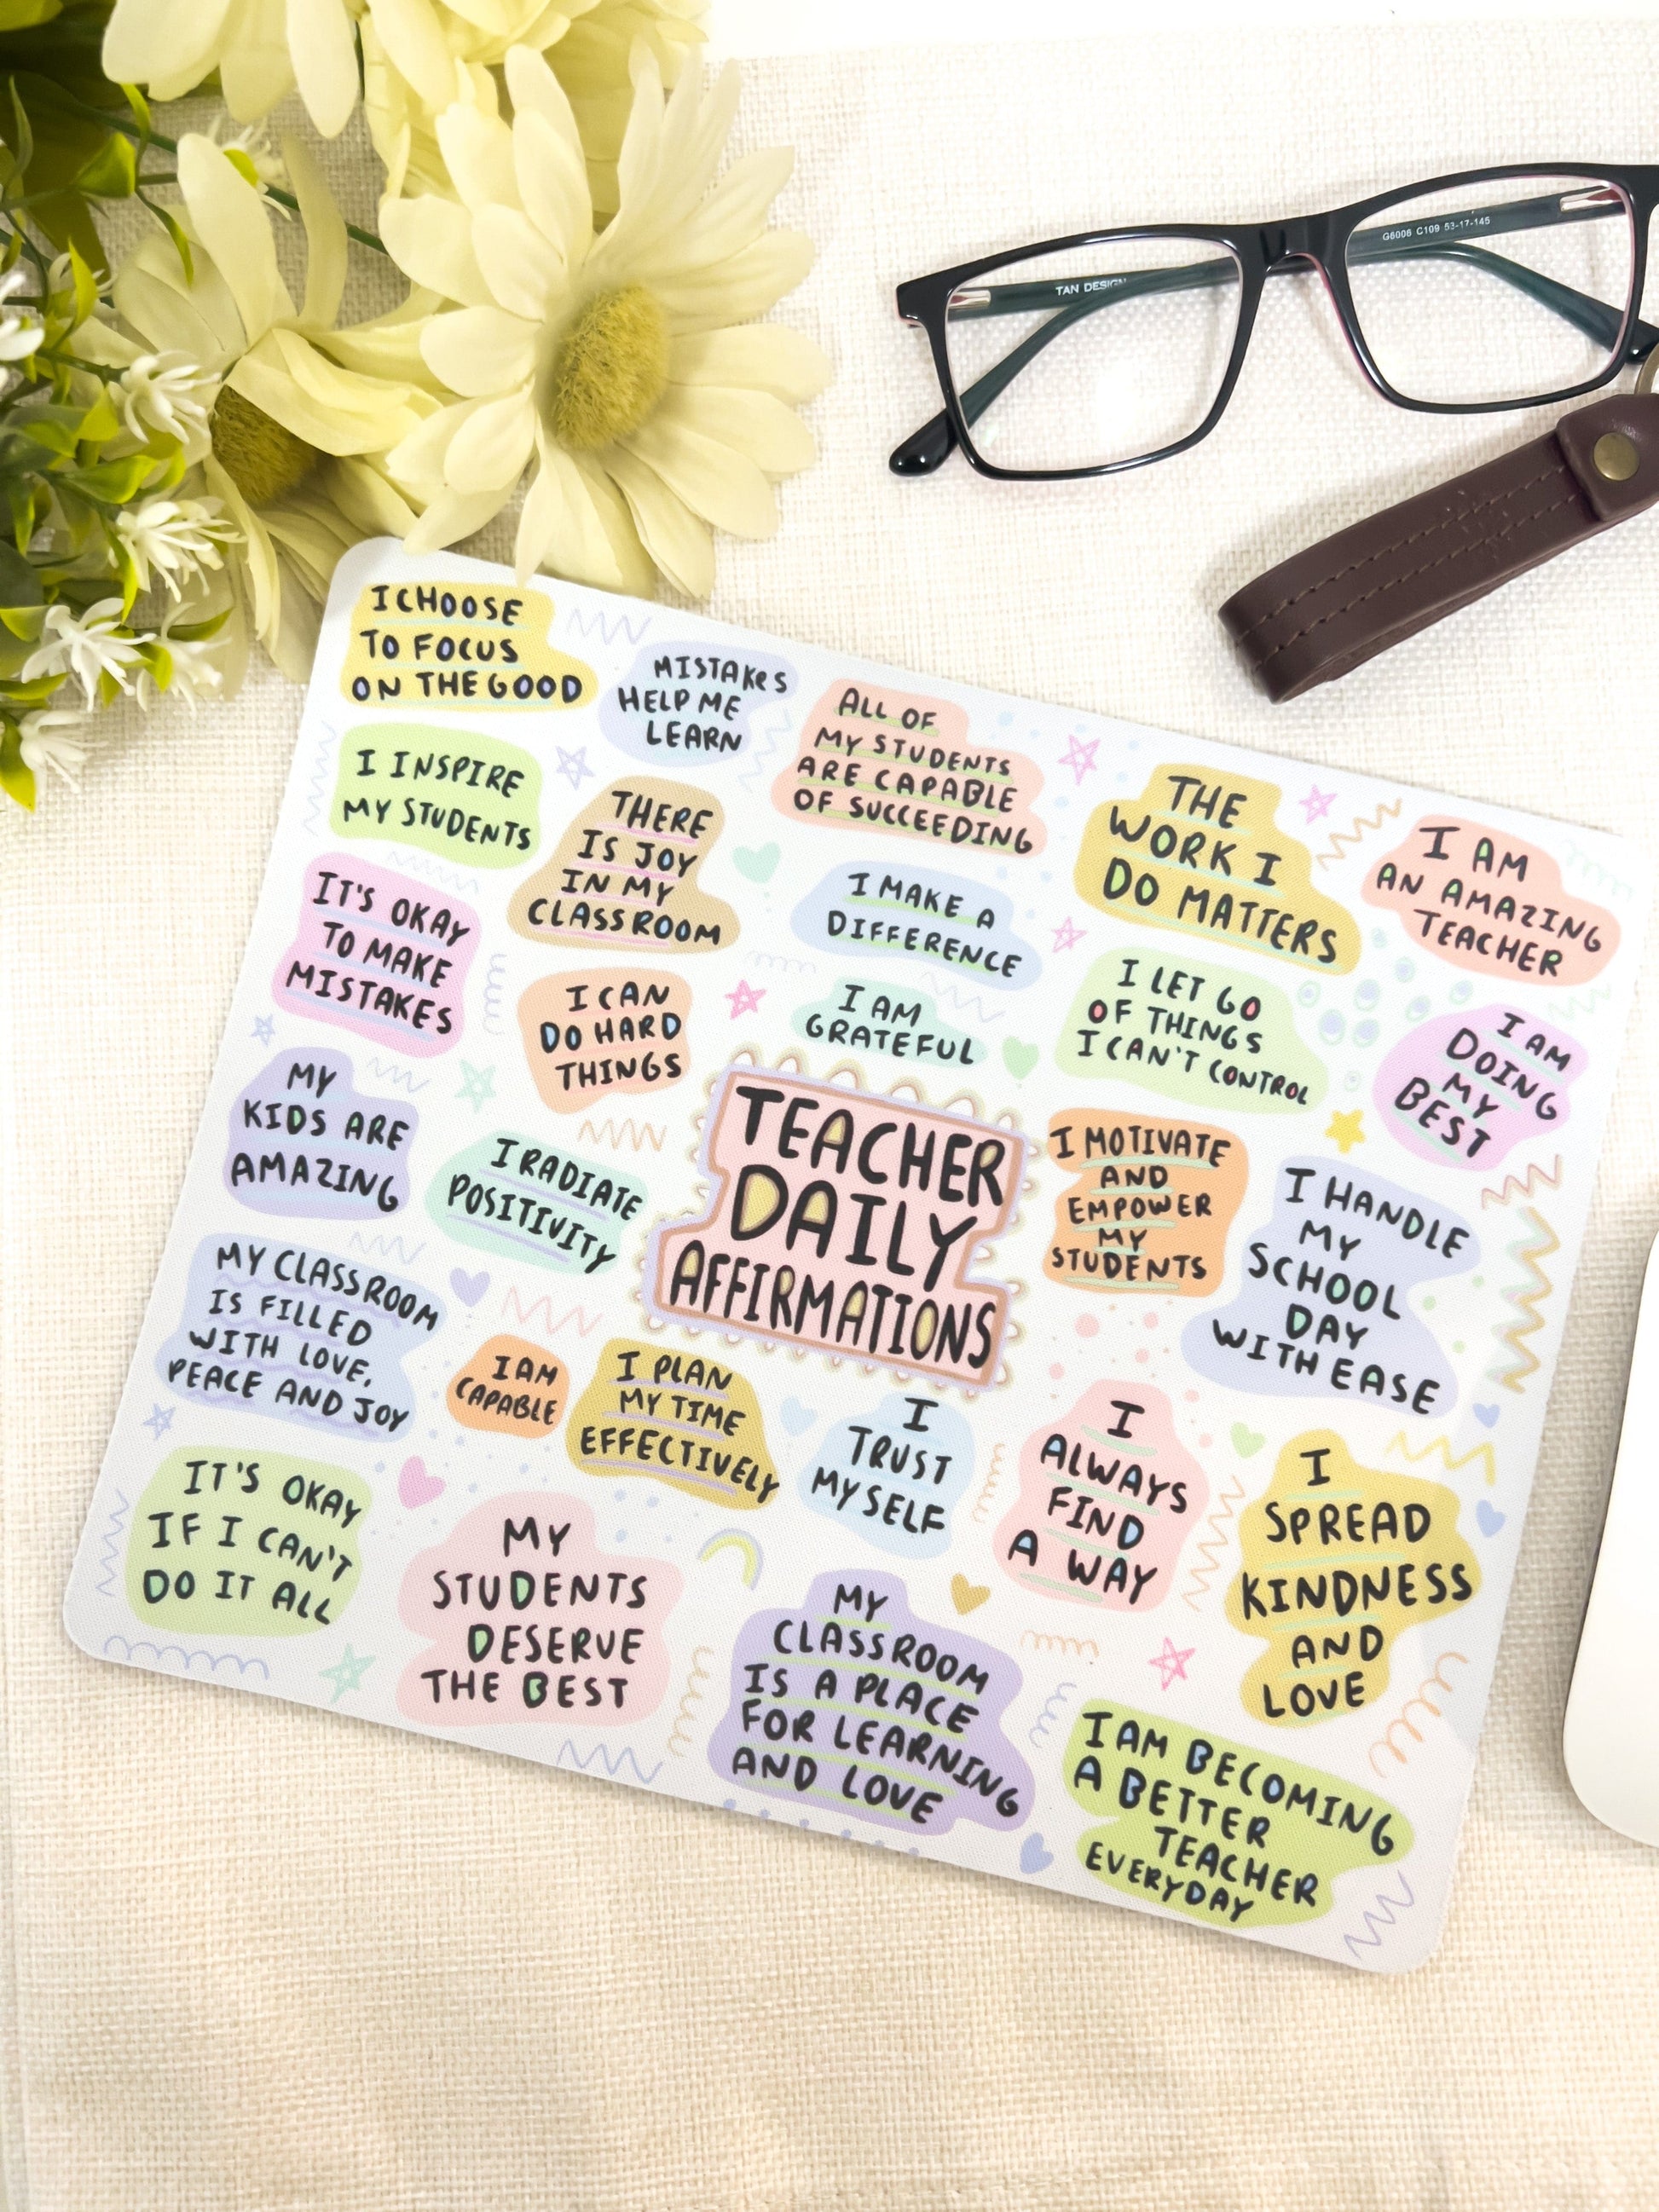 TAN DESIGN
G6006 C109 53-17-145
I CHOOSE
TO FOCUS
ON THE GOOD
MISTAKES
HELP ME
LEARN
ALL OF
MY STUDENTS
ARE CAPABLE
OF SUCCEEDING
THE
WORK I
DO MATTERS
I AM
AN AMAZING
TEACHER
I INSPIRE
MY STUDENTS
THERE
IS JOY
IN MY
CLASSROOM
I MAKE A
DIFFERENCE
IT'S OKAY
TO MAKE
MISTAKES
I CAN
DO HARD
THINGS
I AM
GRATEFUL
I LET GO
OF THINGS
I CAN'T CONTROL
I AM
DOING
MY
BEST
MY
KIDS ARE
AMAZING
I RADIATE
POSITIVITY
TEACHER
DAILY
AFFIRMATIONS
I MOTIVATE
AND
EMPOWER
MY
STUDENTS
I HANDLE
MY
SCHOOL
DAY
WITH EASE
MY CLASSROOM
IS FILLED
WITH LOVE,
PEACE AND JOY
I AM
CAPABLE
I PLAN
MY TIME
EFFECTIVELY
I
TRUST
MYSELF
I
ALWAYS
FIND
A WAY
I
SPREAD
KINDNESS
AND
LOVE
IT'S OKAY
IF I CAN'T
DO IT ALL
MY
STUDENTS
DESERVE
THE BEST
MY
CLASSROOM
IS A PLACE
FOR LEARNING
AND LOVE
I AM BECOMING
A BETTER
TEACHER
EVERYDAY